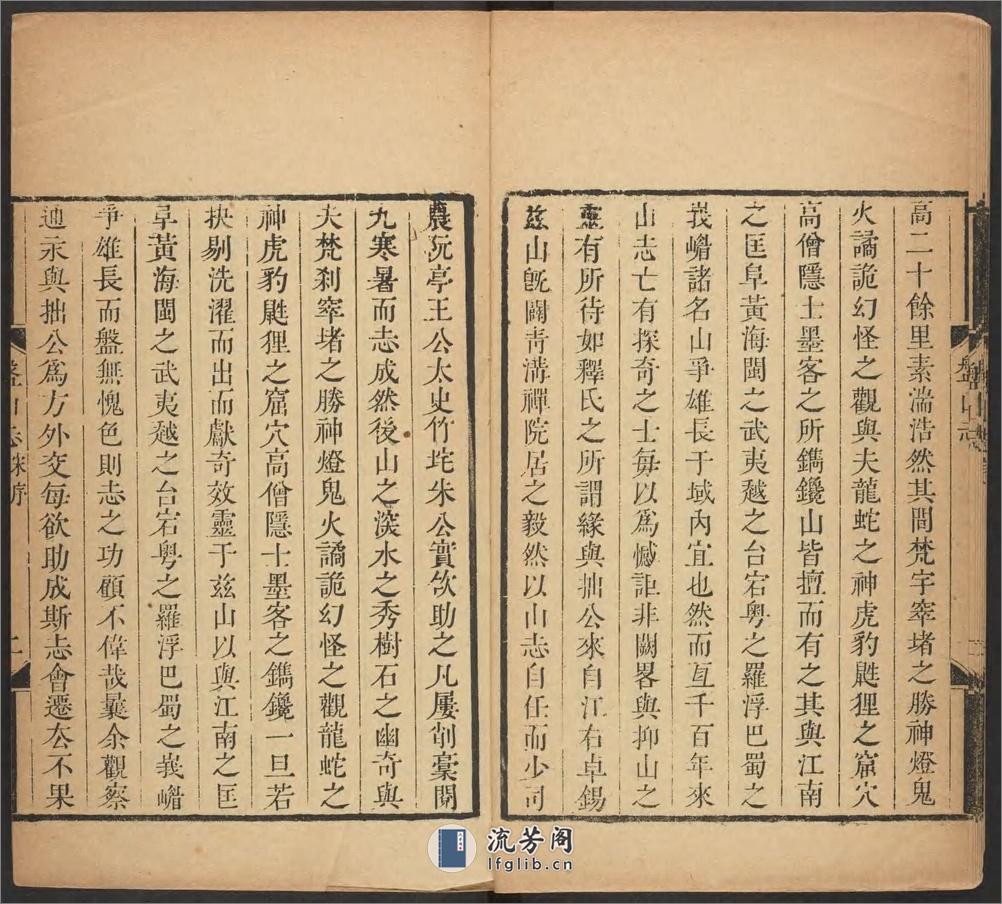 高二十餘里素湍浩然其間梵宇窣堵之勝神燈鬼
火譎詭幻怪之觀與夫龍蛇之神虎豹鼪狸之窟穴
高僧隱士墨客之所鐫鑱山皆擅而有之其與江南
之匡阜黃海閩之武夷越之台宕粤之羅浮巴蜀之
峩嶓諸名山爭雄長于域內宜也然而亙千百年來
山志亡有探奇之士每以爲憾詎非闕畧與抑山之
靈有所待如釋氏之所謂緣與拙公來自江右卓錫
兹山旣闢青溝禪院居之毅然以山志自任而少司
農阮亭王公太史竹垞朱公實佽助之凡屢削稾閱
九寒暑而志成然後山之深水之秀樹石之幽奇與
夫梵刹窣堵之勝神燈鬼火譎詭幻怪之觀龍蛇之
神虎豹鼪狸之窟穴高僧隱士墨客之鐫鑱一旦若
抉剔洗濯而出而獻奇效靈于兹山以與江南之匡
阜黃海閩之武夷越之台宕粤之羅浮巴蜀之峩嶓
爭雄長而盤無愧色則志之功顧不偉哉曩余觀察
通永與拙公爲方外交每欲助成斯志會遷去不果
盤山志
盤山志 朱序
二
流芳阁
lfglib.cn